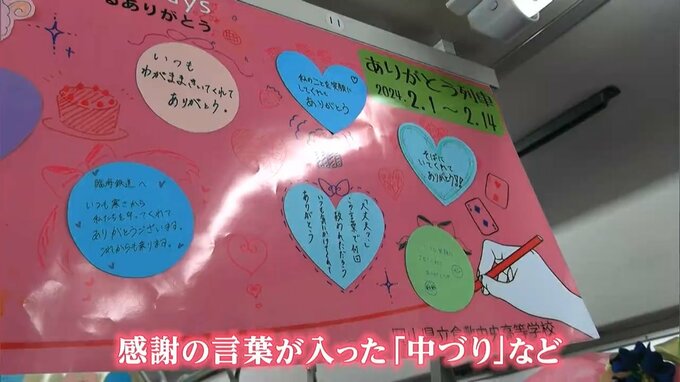 ays
るありがとう
11
ありがとう列車
2024.2.1～2.14
いつも
わがままきいてくれて
ありがとう。
私のことを笑顔に
してくれて
ありがとう
そばに
いてくれて
ありがとう!!
臨海鉄道へ
いつも寒さから
私たちを守ってくれて
ありがとうございます。
これからも乗ります。
「大丈夫?」
この言葉で何回
救われただろう
いつも気にかけてくれて
ありがとう
山県立倉敷中央高等学校
感謝の言葉が入った「中づり」など